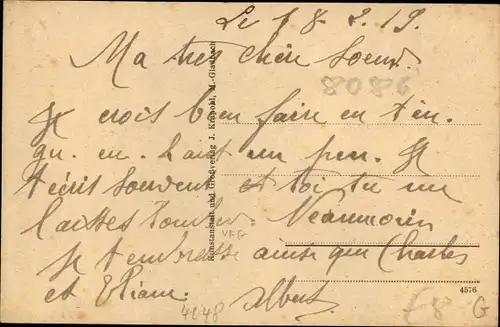 Le 18.2.19.
Ma tres chère Soeur.
8086
Je crois bien faire en t'en
gu.. en . hait un peu. Je
t'écrit souvent et toi tu me
laisses tomber. Neanmoins
Je t'embrasse ainsi que Charles
et Eliane. Albert
Kunstanstalt und Großverlag J. Krapohl, M.-Gladbach
VFG
4576
4248
€8 G